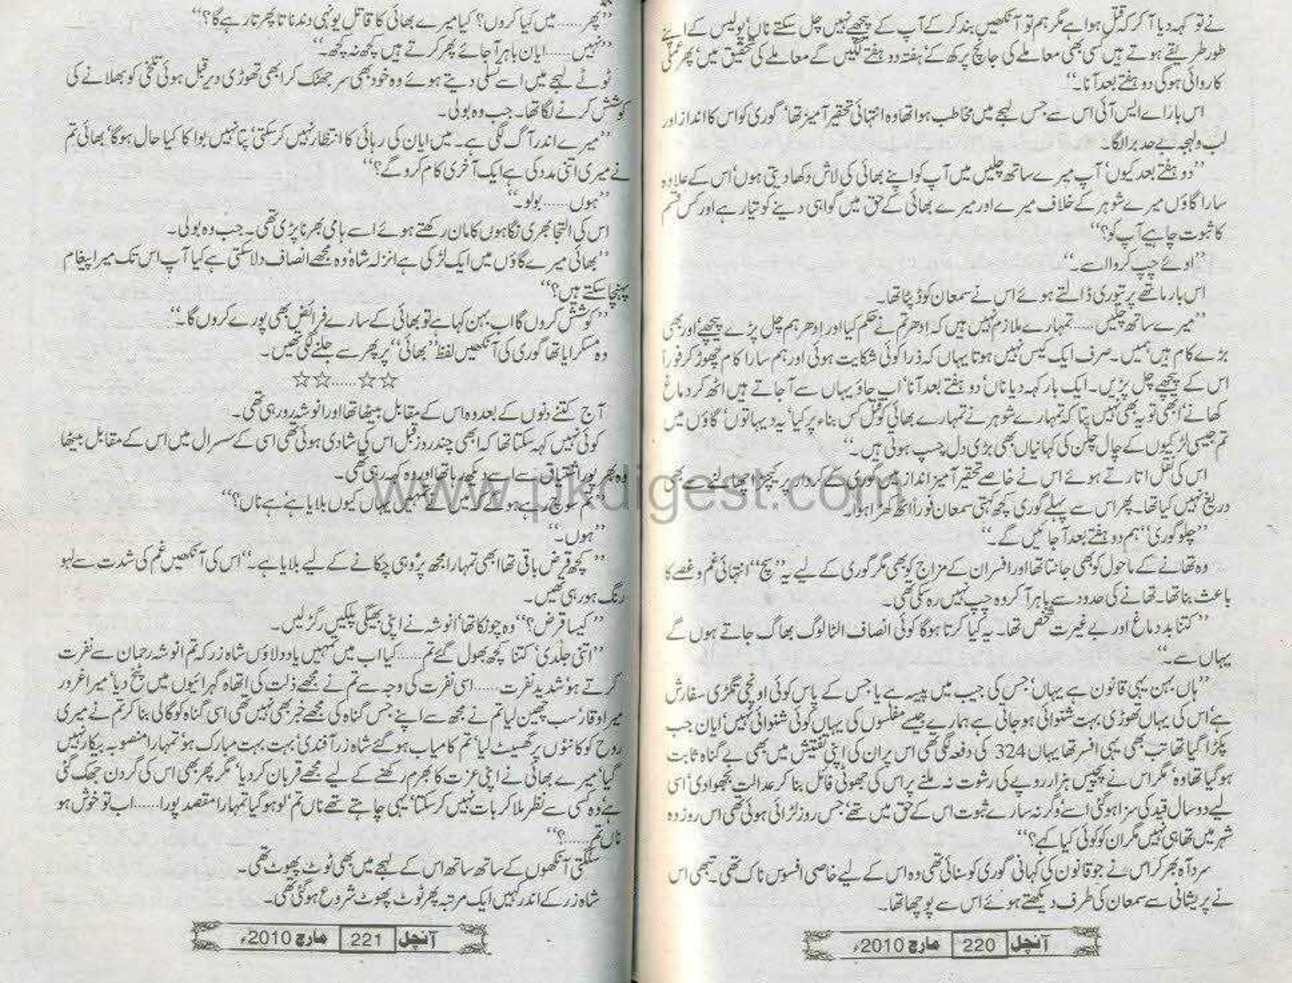 نے تو کہہ دیا آ کر کہ قتل ہوا ہے مگر ہم تو آنکھیں بند کر کے آپ کے پیچھے نہیں چل سکتے ناں‘ پولیس کے اپنے
طور طریقے ہوتے ہیں کسی بھی معاملے کی جانچ پرکھ کے‘ ہفتہ دو ہفتے لگیں گے معاملے کی تحقیق میں‘ پھر عملی
کاروائی ہو گی دو ہفتے بعد آنا۔‘‘
اس بار اے ایس آئی اس سے جس لہجے میں مخاطب ہوا تھا وہ انتہائی تحقیر آمیز تھا‘ گوری کو اس کا انداز اور
لب و لہجہ بے حد برا لگا۔
’’دو ہفتے بعد کیوں‘ آپ میرے ساتھ چلیں میں آپ کو اپنے بھائی کی لاش دکھا دیتی ہوں‘ اس کے علاوہ
سارا گاؤں میرے شوہر کے خلاف میرے اور میرے بھائی کے حق میں گواہی دینے کو تیار ہے اور کس قسم
کا ثبوت چاہیے آپ کو؟‘‘
’’اوئے چپ کروا اسے۔‘‘
اس بار ماتھے پر تیوری ڈالتے ہوئے اس نے سمعان کو ڈپٹا تھا۔
’’میرے ساتھ چلیں.....تمہارے ملازم نہیں ہیں کہ ادھر تم نے حکم کیا اور ادھر ہم چل پڑے پیچھے‘ اور بھی
بڑے کام ہیں ہمیں۔ صرف ایک کیس نہیں ہوتا یہاں کہ ذرا کوئی شکایت ہوئی اور ہم سارا کام چھوڑ کر فوراً
اس کے پیچھے چل پڑیں۔ ایک بار کہہ دیا ناں‘ دو ہفتے بعد آنا‘ اب جاؤ یہاں سے آ جاتے ہیں اٹھ کر دماغ
کھانے‘ ابھی تو یہ بھی نہیں پتا کہ تمہارے شوہر نے تمہارے بھائی کو قتل کس بناء پر کیا‘ یہ دیہاتوں‘ گاؤں میں
تم جیسی لڑکیوں کے چال چلن کی کہانیاں بھی بڑی دل چسپ ہوتی ہیں۔‘‘
اس کی نقل اتارتے ہوئے اس نے خاصے تحقیر آمیز انداز میں گوری کے کردار پر کیچڑ اچھالنے سے بھی
دریغ نہیں کیا تھا۔ پھر اس سے پہلے گوری کچھ کہتی سمعان فوراً اٹھ کھڑا ہوا۔
’’چلو گوری‘ ہم دو ہفتے بعد آ جائیں گے۔‘‘
وہ تھانے کے ماحول کو بھی جانتا تھا اور افسران کے مزاج کو بھی مگر گوری کے لیے یہ ’’سچ‘‘ انتہائی غم و غصے کا
باعث بنا تھا۔ تھانے کی حدود سے باہر آ کر وہ چپ نہیں رہ سکی تھی۔
’’کتنا بد دماغ اور بے غیرت شخص تھا۔ یہ کیا کرتا ہو گا کوئی انصاف الٹا لوگ بھاگ جاتے ہوں گے
یہاں سے۔‘‘
’’ہاں بہن یہی قانون ہے یہاں‘ جس کی جیب میں پیسہ ہے یا جس کے پاس کوئی اونچی تگڑی سفارش
ہے‘ اس کی یہاں تھوڑی بہت شنوائی ہو جاتی ہے ہمارے جیسے مفلسوں کی یہاں کوئی شنوائی نہیں‘ ایان جب
پکڑا گیا تھا تب بھی یہی افسر تھا یہاں 324 کی دفعہ لگی تھی اس پر ان کی اپنی تفتیش میں بھی بے گناہ ثابت
ہو گیا تھا وہ‘ مگر اس نے پچیس ہزار روپے کی رشوت نہ ملنے پر اس کی جھوٹی فائل بنا کر عدالت بھجوا دی‘ اسی
لیے دو سال قید کی سزا ہو گئی اسے‘ وگرنہ سارے ثبوت اس کے حق میں تھے‘ جس روز لڑائی ہوئی تھی اس روز وہ
شہر میں تھا ہی نہیں مگر ان کو کوئی کیا کہے؟‘‘
سرد آہ بھر کر اس نے جو قانون کی کہانی گوری کو سنائی تھی وہ اس کے لیے خاصی افسوس ناک تھی۔ تبھی اس
نے پریشانی سے سمعان کی طرف دیکھتے ہوئے اس سے پوچھا تھا۔
آنچل 220 مارچ 2010ء
’’پھر.....میں کیا کروں؟ کیا میرے بھائی کا قاتل یونہی دندناتا پھرتا رہے گا؟‘‘
’’نہیں.....ایان باہر آ جائے پھر کرتے ہیں کچھ نہ کچھ۔‘‘
ٹوٹے لہجے میں اسے تسلی دیتے ہوئے وہ خود بھی سر جھٹک کر ابھی تھوڑی دیر قبل ہوئی تلخی کو بھلانے کی
کوشش کرنے لگا تھا۔ جب وہ بولی۔
’’میرے اندر آگ لگی ہے۔ میں ایان کی رہائی کا انتظار نہیں کر سکتی‘ پتا نہیں بوا کا کیا حال ہو گا‘ بھائی تم
نے میری اتنی مدد کی ہے ایک آخری کام کرو گے؟‘‘
’’ہوں.....بولو۔‘‘
اس کی التجا بھری نگاہوں کا مان رکھتے ہوئے اسے ہامی بھرنا پڑی تھی۔ جب وہ بولی۔
’’بھائی میرے گاؤں میں ایک لڑکی ہے انزلہ شاہ‘ وہ مجھے انصاف دلا سکتی ہے کیا آپ اس تک میرا پیغام
پہنچا سکتے ہیں؟‘‘
’’کوشش کروں گا اب بہن کہا ہے تو بھائی کے سارے فرائض بھی پورے کروں گا۔‘‘
وہ مسکرایا تھا گوری کی آنکھیں لفظ ’’بھائی‘‘ پر پھر سے جلنے لگی تھیں۔
☆☆.....☆☆
آج کتنے دنوں کے بعد وہ اس کے مقابل بیٹھا تھا اور انوشہ رو رہی تھی۔
کوئی نہیں کہہ سکتا تھا کہ ابھی چند روز قبل اس کی شادی ہوئی تھی اسی کے سسرال میں اس کے مقابل بیٹھا
وہ بھر پور اشتیاق سے اسے دیکھ رہا تھا اور وہ کہہ رہی تھی۔
’’تم سوچ رہے ہو گے کہ میں نے تمہیں یہاں کیوں بلایا ہے‘ ہے ناں؟‘‘
’’ہوں۔‘‘
’’کچھ قرض باقی تھا ابھی تمہارا مجھ پر‘ وہی چکانے کے لیے بلایا ہے۔‘‘ اس کی آنکھیں غم کی شدت سے لہو
رنگ ہو رہی تھیں۔
’’کیسا قرض؟‘‘ وہ چونکا تھا‘ انوشہ نے اپنی بھیگی پلکیں رگڑ لیں۔
’’اتنی جلدی‘ کتنا کچھ بھول گئے تم.....کیا اب میں تمہیں یاد دلاؤں شاہ زر کہ تم انوشہ رحمان سے نفرت
کرتے ہو‘ شدید نفرت.....اسی نفرت کی وجہ سے تم نے مجھے ذلت کی اتھاہ گہرائیوں میں پٹخ دیا‘ میرا غرور
میرا وقار‘ سب چھین لیا تم نے مجھ سے اپنے جس گناہ کی مجھے خبر بھی نہیں تھی اسی گناہ کو گالی بنا کر تم نے میری
روح کو کانٹوں پر گھسیٹ لیا‘ تم کامیاب ہو گئے شاہ زر آفندی‘ بہت بہت مبارک ہو‘ تمہارا منصوبہ بیکار نہیں
گیا‘ میرے بھائی نے اپنی عزت کا بھرم رکھنے کے لیے مجھے قربان کر دیا‘ مگر پھر بھی اس کی گردن جھک گئی
ہے‘ وہ کسی سے نظر ملا کر بات نہیں کر سکتا‘ یہی چاہتے تھے ناں تم‘ لو ہو گیا تمہارا مقصد پورا.....اب تو خوش ہو
ناں تم.....؟‘‘
سلگتی آنکھوں کے ساتھ ساتھ اس کے لہجے میں بھی ٹوٹ پھوٹ تھی۔
شاہ زر کے اندر کہیں ایک مرتبہ پھر ٹوٹ پھوٹ شروع ہو گئی تھی۔
آنچل 221 مارچ 2010ء
www.pkdigest.com